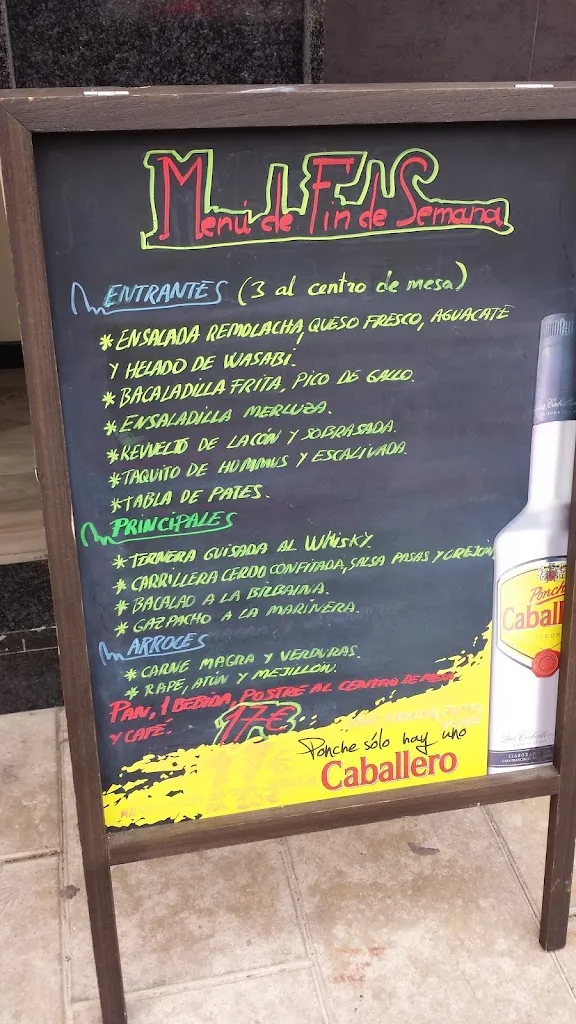 Menú de Fin de Semana
ENTRANTES (3 al centro de mesa)
* ENSALADA REMOLACHA, QUESO FRESCO, AGUACATE
Y HELADO DE WASABI.
* BACALADILLA FRITA, PICO DE GALLO.
* ENSALADILLA MERLUZA.
* REVUELTO DE LACÓN Y SOBRASADA.
* TAQUITO DE HUMMUS Y ESCALIVADA.
* TABLA DE PATES.
PRINCIPALES
* TERNERA GUISADA AL WHISKY.
* CARRILLERA CERDO CONFITADA, SALSA PASAS Y OREJON
* BACALAO A LA BILBAINA.
* GAZPACHO A LA MARINERA.
ARROCES
* CARNE MAGRA Y VERDURAS.
* RAPE, ATÚN Y MEJILLÓN.
PAN, 1 BEBIDA, POSTRE AL CENTRO DE MESA
Y CAFÉ. 17€
Ponche sólo hay uno
Caballero
Ponche
Caball